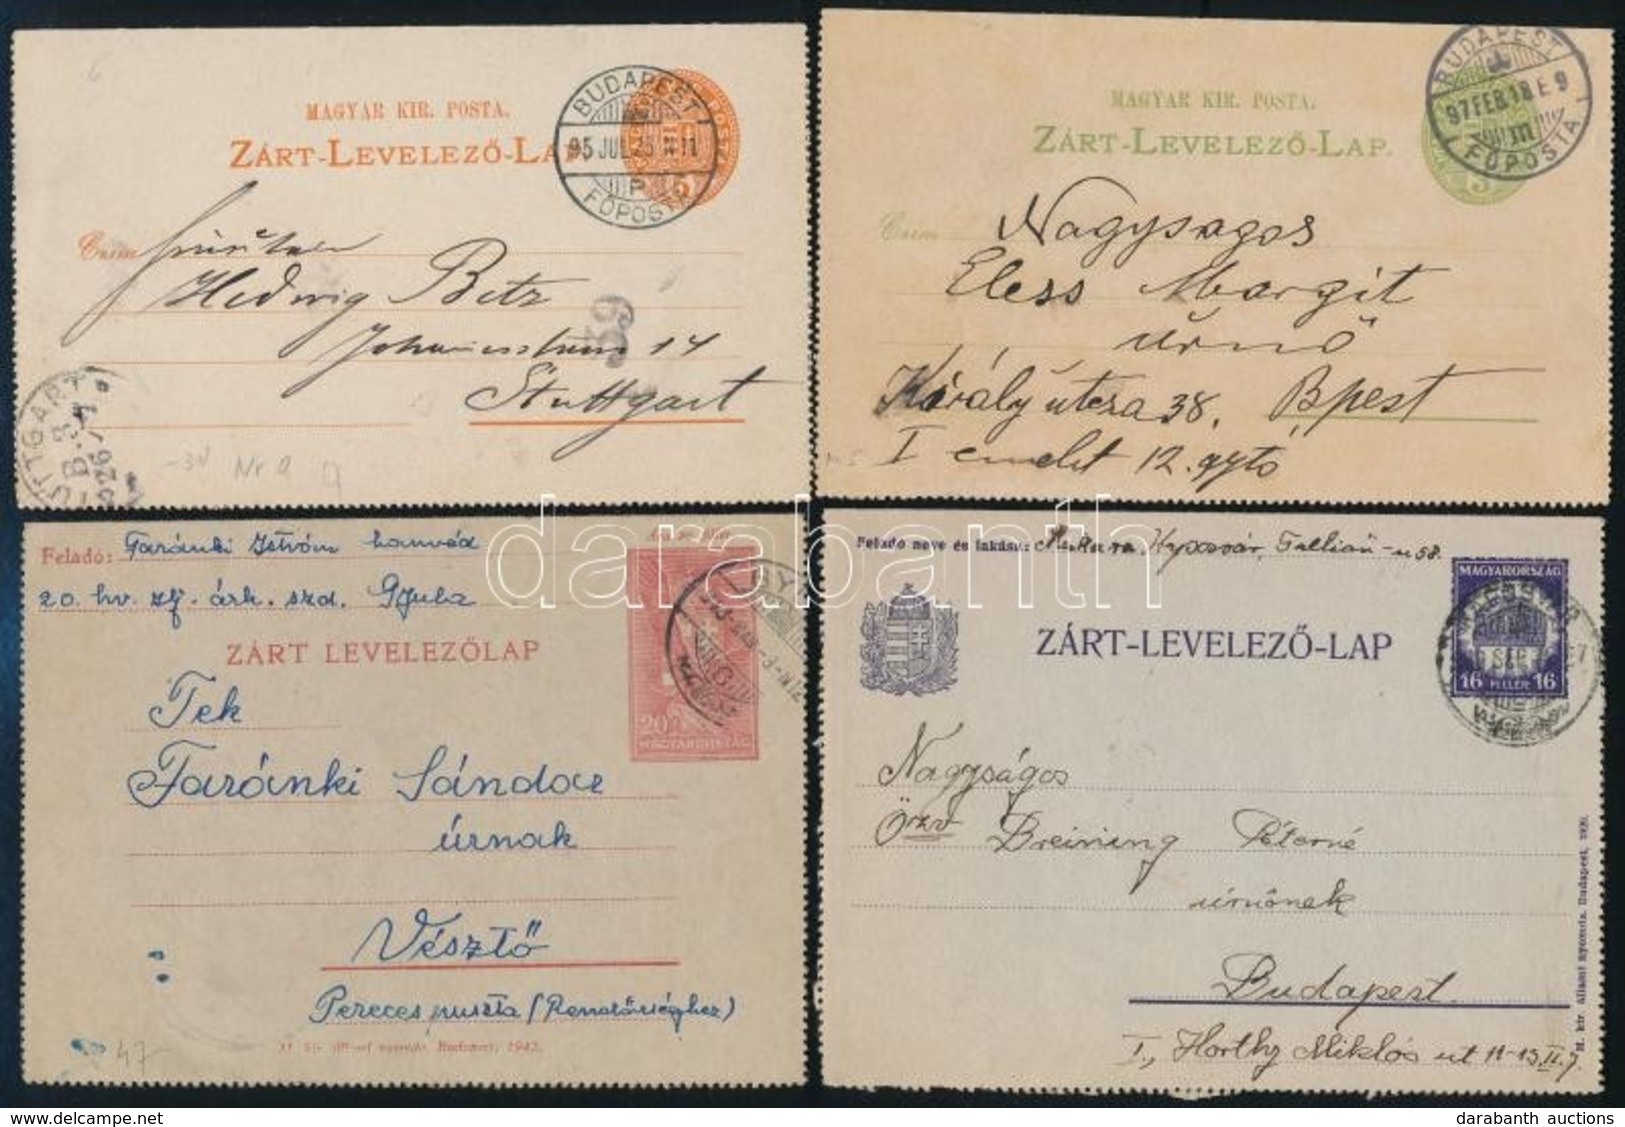 MAGYAR KIR. POSTA.
ZÁRT-LEVELEZŐ-LAP.
BUDAPEST
95 JUL 25
P
FŐPOSTA
5
Czím
Hedwig Betz
14
Stuttgart
39
STUTTGART
Nr 9
9
MAGYAR KIR. POSTA.
ZÁRT-LEVELEZŐ-LAP.
BUDAPEST
97 FEB. 18 E 9
m
FŐPOSTA
3
Czím
Nagysagos
Eless Margit
úrnő
Király utcza 38. Bpest
I emelet 12. ajtó
darabanth
Feladó: Faránki István honvéd
20. hv. zlj. árk. szd. Gyula
ZÁRT LEVELEZŐLAP
20
MAGYARORSZÁG
Tek
Faránki Sándor
úrnak
Vésztő
Pereces puszta (Rendőrséghez)
M. kir. állami nyomda. Budapest, 1942.
47
Feladó neve és lakása: Kaposvár, Tallián-u 58.
ZÁRT-LEVELEZŐ-LAP
MAGYARORSZÁG
16 FILLÉR 16
Nagyságos
Özv Breining Péterné
úrnőnek
Budapest
I., Horthy Miklós út 11-13 II. 7.
M. kir. állami nyomda. Budapest, 1929.
darabanth auctions